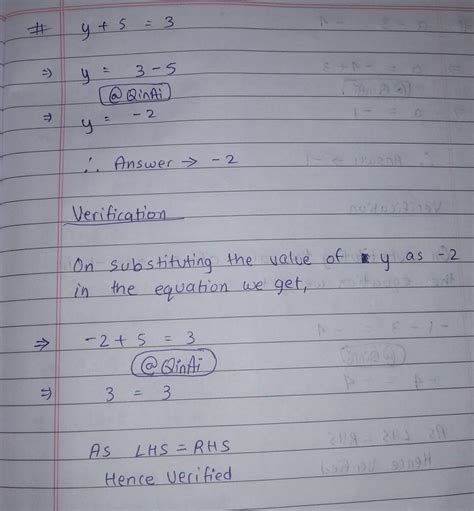 # y + 5 = 3
⇒ y = 3 - 5
@QinAi
⇒ y = -2
∴ Answer → -2
Verification
On substituting the value of y as -2
in the equation we get,
⇒ -2 + 5 = 3
@QinAi
⇒ 3 = 3
As LHS = RHS
Hence Verified